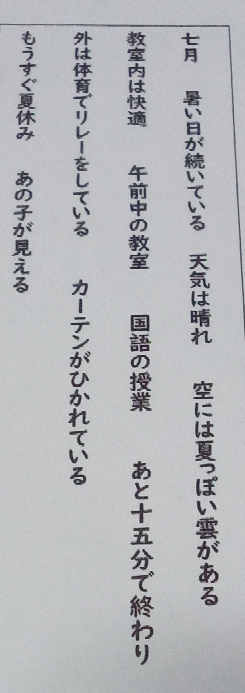 七月　暑い日が続いている　天気は晴れ　空には夏っぽい雲がある
教室内は快適　午前中の教室　国語の授業　あと十五分で終わり
外は体育でリレーをしている　カーテンがひかれている
もうすぐ夏休み　あの子が見える